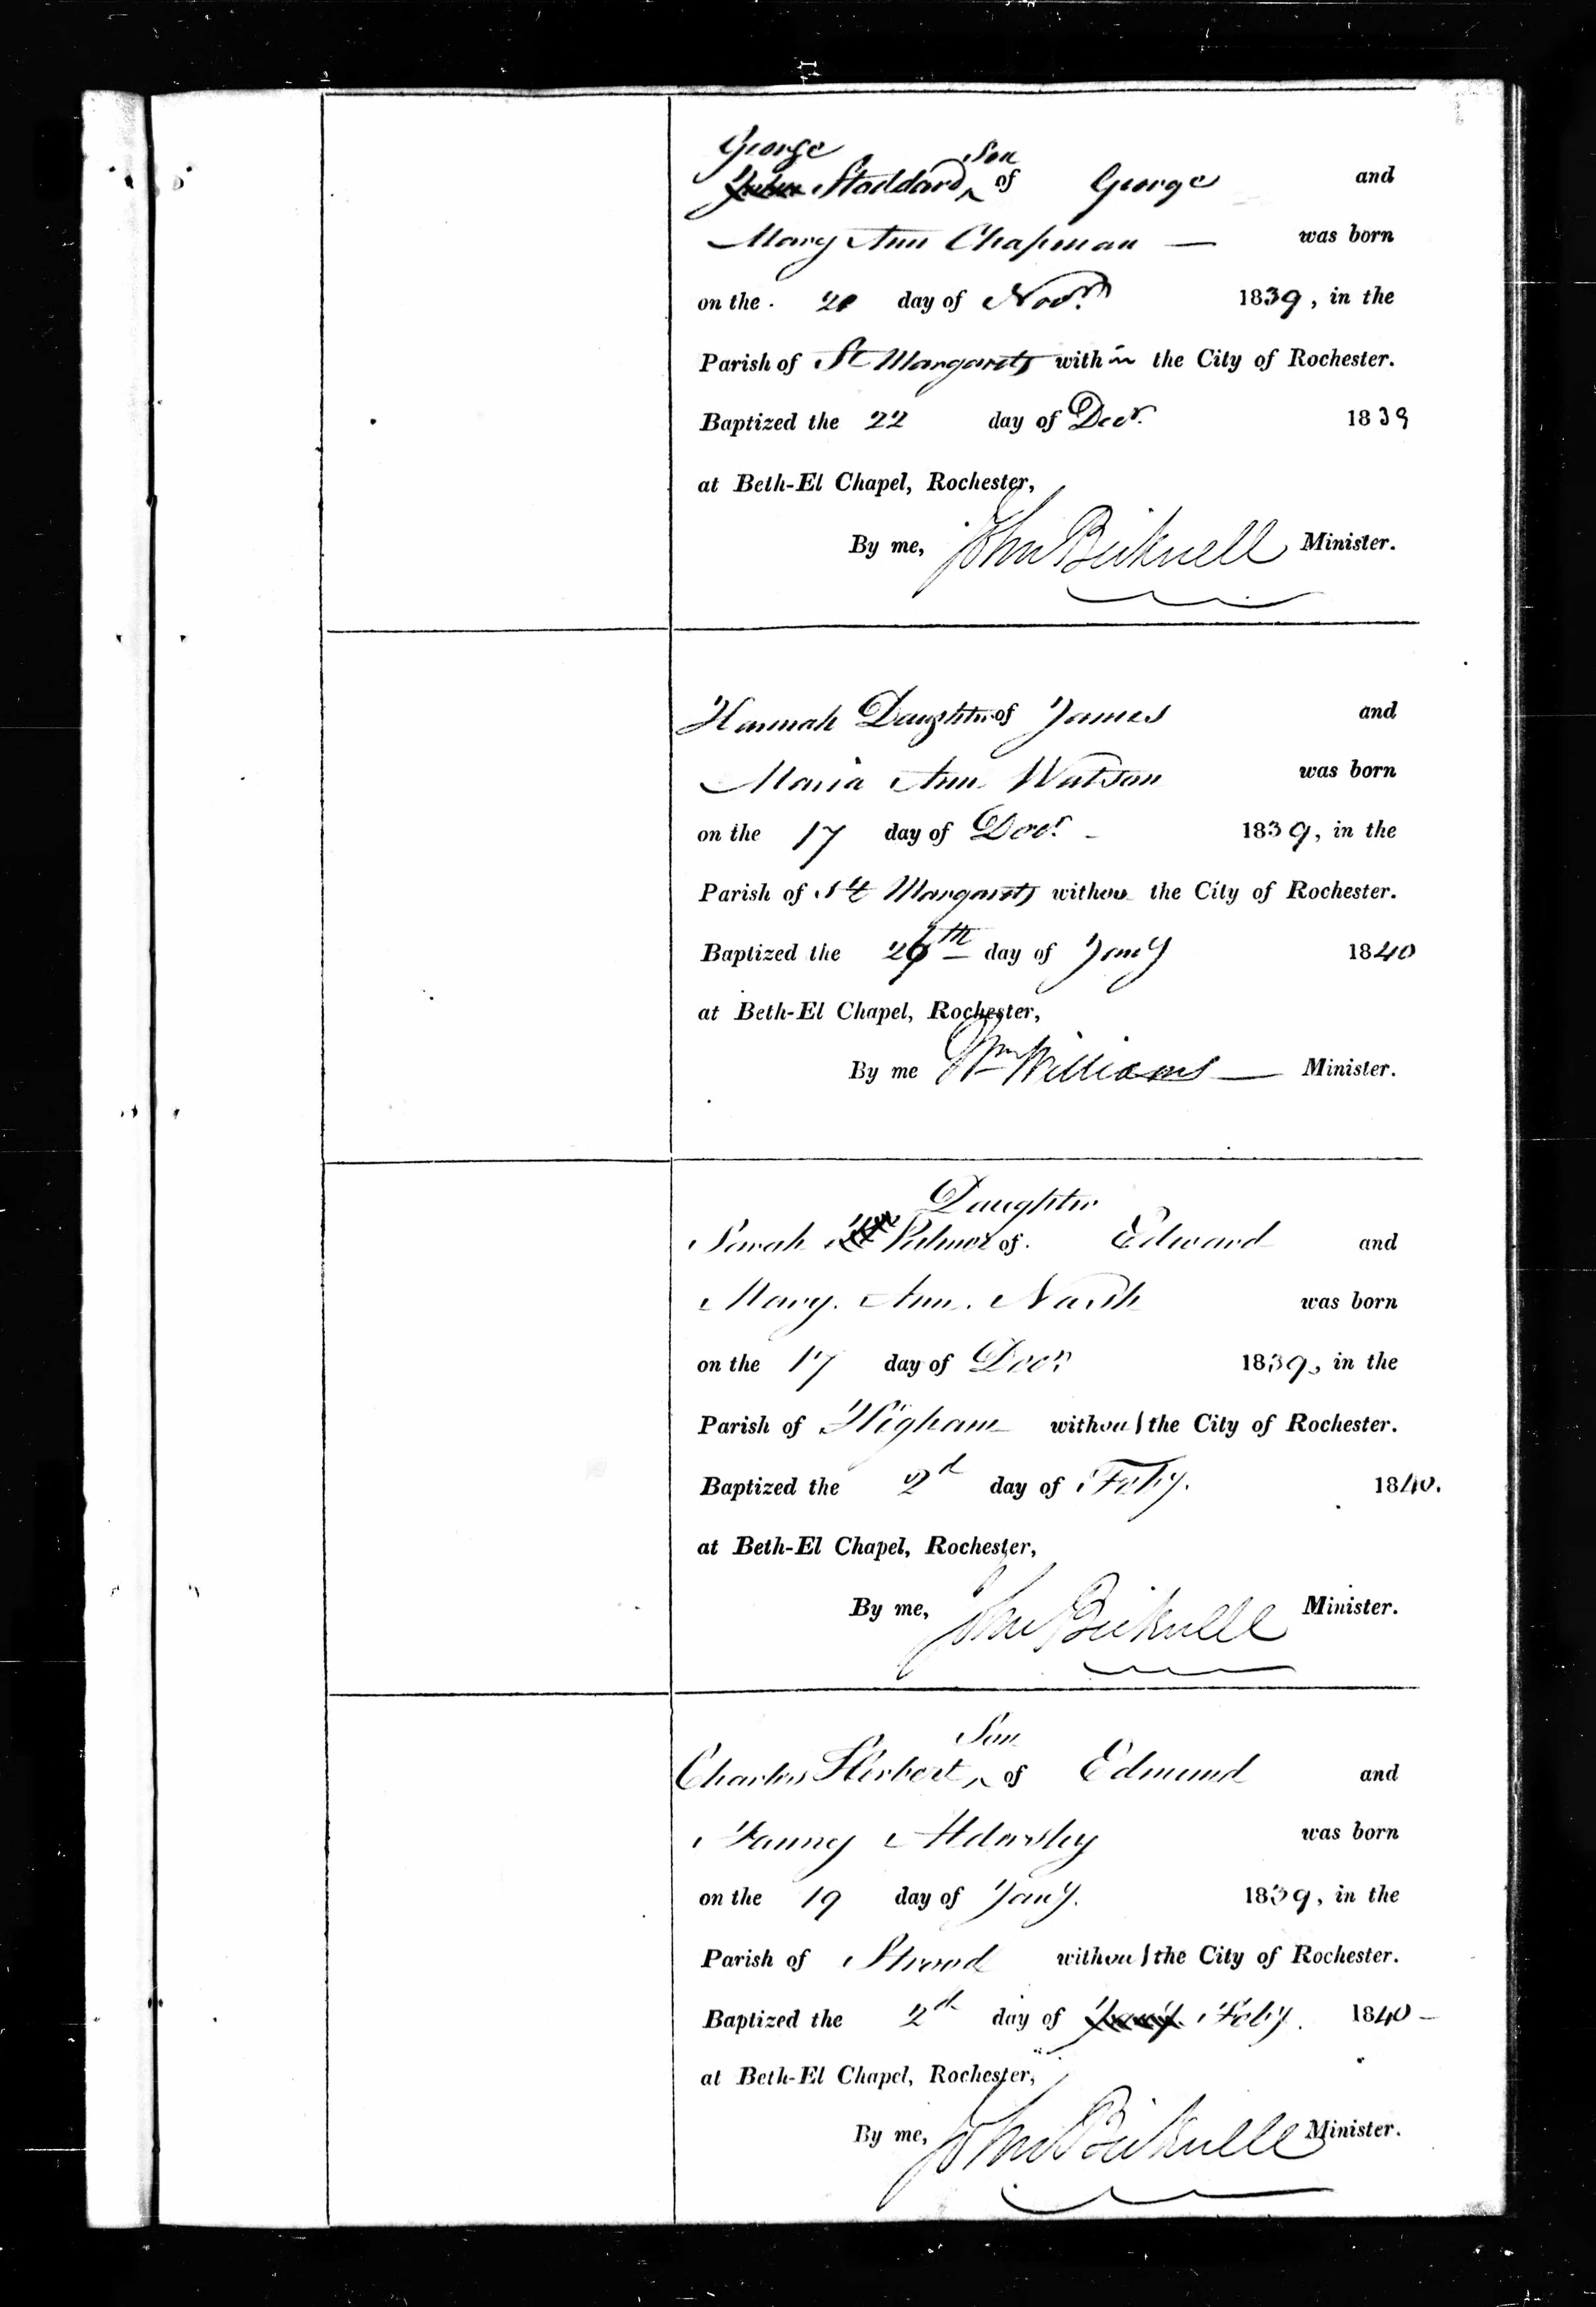 George Son
John Stoddard ^ of George and
Mary Ann Chapman — was born
on the 20 day of Novr 1839, in the
Parish of St Margarets within the City of Rochester.
Baptized the 22 day of Decr. 1839
at Beth-El Chapel, Rochester,
By me, John Bicknell Minister.
Hannah Daughter of James and
Maria Ann Watson was born
on the 17 day of Decr - 1839, in the
Parish of St Margarets withou the City of Rochester.
Baptized the 26th day of Jany 1840
at Beth-El Chapel, Rochester,
By me Wm Williams — Minister.
Daughter
Sarah Palmer of Edward and
Mary Ann Nash was born
on the 17 day of Decr 1839, in the
Parish of Higham without the City of Rochester.
Baptized the 2d day of Feby. 1840.
at Beth-El Chapel, Rochester,
By me, John Bicknell Minister.
Son
Charles Herbert ^ of Edmund and
Fanny Aldersley was born
on the 19 day of Jany. 1839, in the
Parish of Strood without the City of Rochester.
Baptized the 2d day of Jany. Feby. 1840 -
at Beth-El Chapel, Rochester,
By me, John Bicknell Minister.